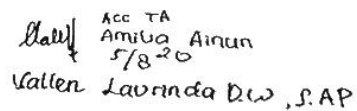 Acc TA
Amilia Ainun
5/8 20
Vallen Laurinda D.W, S.AP